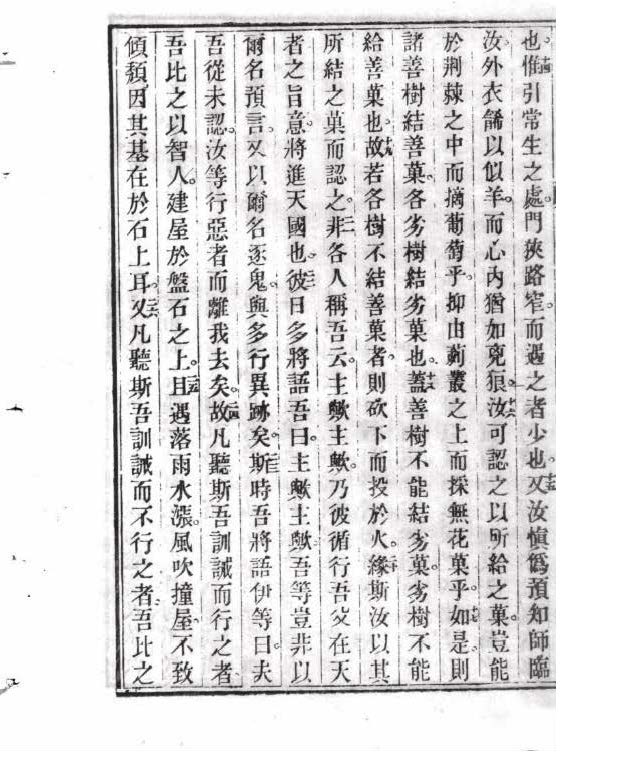 也。十四惟引常生之處。門狹路窄。而遇之者少也。十五又汝慎僞預知師臨
汝外衣餙以似羊。而心內猶如兇狼。十六汝可認之以所給之菓。豈能
於荆棘之中而摘葡萄乎。抑由薊叢之上而採無花菓乎。十七如是則
諸善樹結善菓。各劣樹結劣菓也。十八蓋善樹不能結劣菓。劣樹不能
給善菓也。十九故若各樹不結善菓者。則砍下而投於火。二十緣斯汝以其
所結之菓而認之。二一非各人稱吾云。主歟主歟。乃彼循行吾父在天
者之旨意。將進天國也。二二彼日多將語吾曰。主歟主歟。吾等豈非以
爾名預言。又以爾名逐鬼。與多行異跡矣。二三斯時吾將語伊等曰。夫
吾從未認。汝等行惡者而離我去矣。二四故凡聽斯吾訓誡而行之者
吾比之以智人。建屋於盤石之上。二五且遇落雨水漲。風吹撞屋。不致
傾頹因其基在於石上耳。二六又凡聽斯吾訓誡而不行之者。吾比之